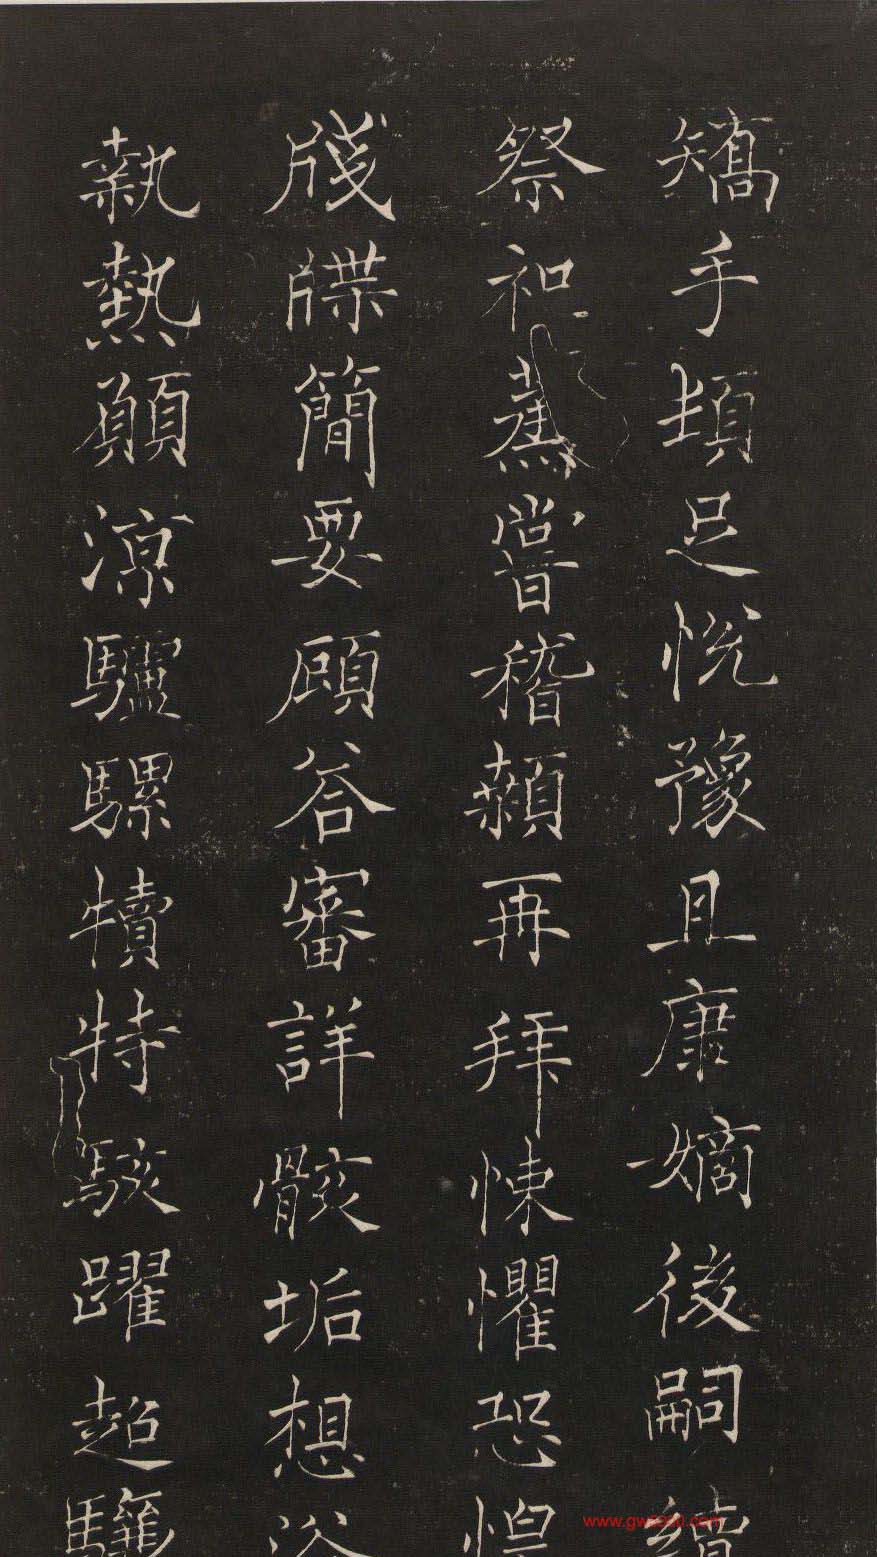 矯手頓足悅豫且康嫡後嗣續
祭祀蒸嘗稽顙再拜悚懼恐惶
牋牒簡要顧答審詳骸垢想浴
執熱願涼驢騾犢特駭躍超驤